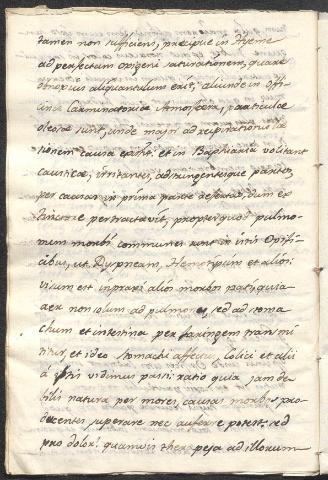 tamen non sufficiens, precipue in Hyeme
ad perfectam oxigeni saturationem, quare
obnoxius aliquantulum erit, aliunde in offi
cina Carminatoriæ Atmosfera, particulæ
oleosæ sunt, unde majori ad respirationis læ
sionem causa exstat. et in Baphiaria volitant
causticæ, irritantes, adstringentesque partes,
per causas in prima parte defectas, dum ex
tinctore pertractavit, propter quod pulmo
num morbi communes sunt in istis Opifi
cibus, ut Dyspneam, Hemotipum et alios
visum est in praxi alios morbos pati, quia
aer non solum ad pulmones, sed ad stoma
chum et intestina per faringem transmi
titur, et ideo stomachi affectus, colici et alii
a istis vidimus passi: ratio quia jam de
bilis natura per mores, causas morbos pro
ducentes superare nec auferre potest. sed
pro dolor! quamvis therapeja ad illorum